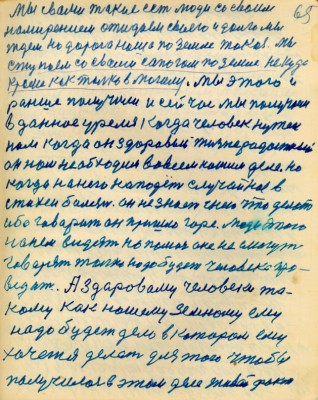 65
Мы с вами такие ест люди со своим
намирением отжидаем своего и долго мы
ждем но дорога наша по земле такова. Мы
ступаем со своем сапогом по земле не куда
кроме как только в могилу. Мы этого и
раньше получили и сейчас мы получаем
в данное уремя когда человек нужен
нам когда он здоровый жизнерадостный
он нам необходим во всем нашем деле. но
когда на него нападет случайное в
стихеи балезн. он не знает чего что делат
ибо говорит он пришло горе. Люди этого
на нем видят но помоч оне не могут
говорят только надо будет человека про-
ведат. А здаровому человеку та-
кому как нашему земному ему
надо будет дело в котором ему
хочется делат для того чтобы
получилос в этом деле